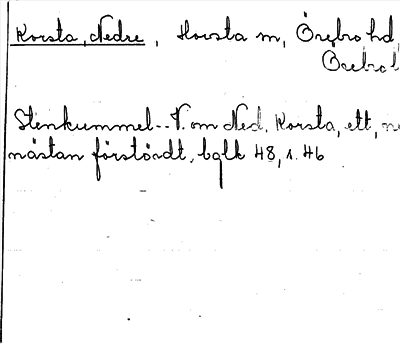 Korsta, Nedre, Hovsta m, Örebro hd
Örebro l
Stenkummel--V. om Ned. Korsta, ett, n
nästan förstördt, bglk 48, s. 46